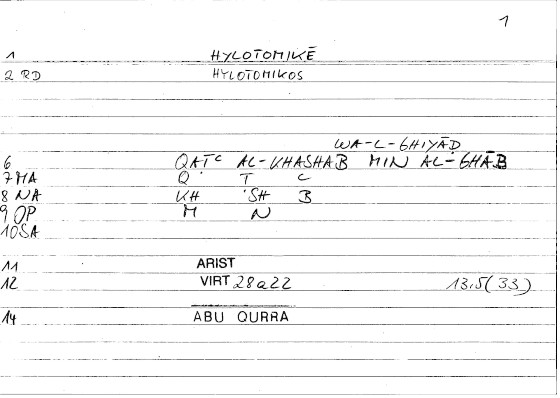 1
1 HYLOTOMIKĒ
2 RD HYLOTOMIKOS
WA-L-GHIYĀD
6 QATᶜ AL-KHASHAB MIN AL-GHĀB
7 MA Q Ṭ C
8 NA KH SH B
9 OP M N
10 SA
11 ARIST
12 VIRT 28a22 13.5(33)
14 ABU QURRA